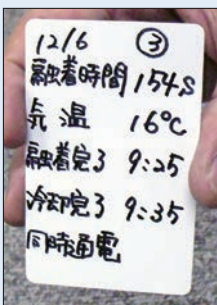 12/6 ③
融着時間 154S
気温 16℃
融着完了 9:25
冷却完了 9:35
同時通電